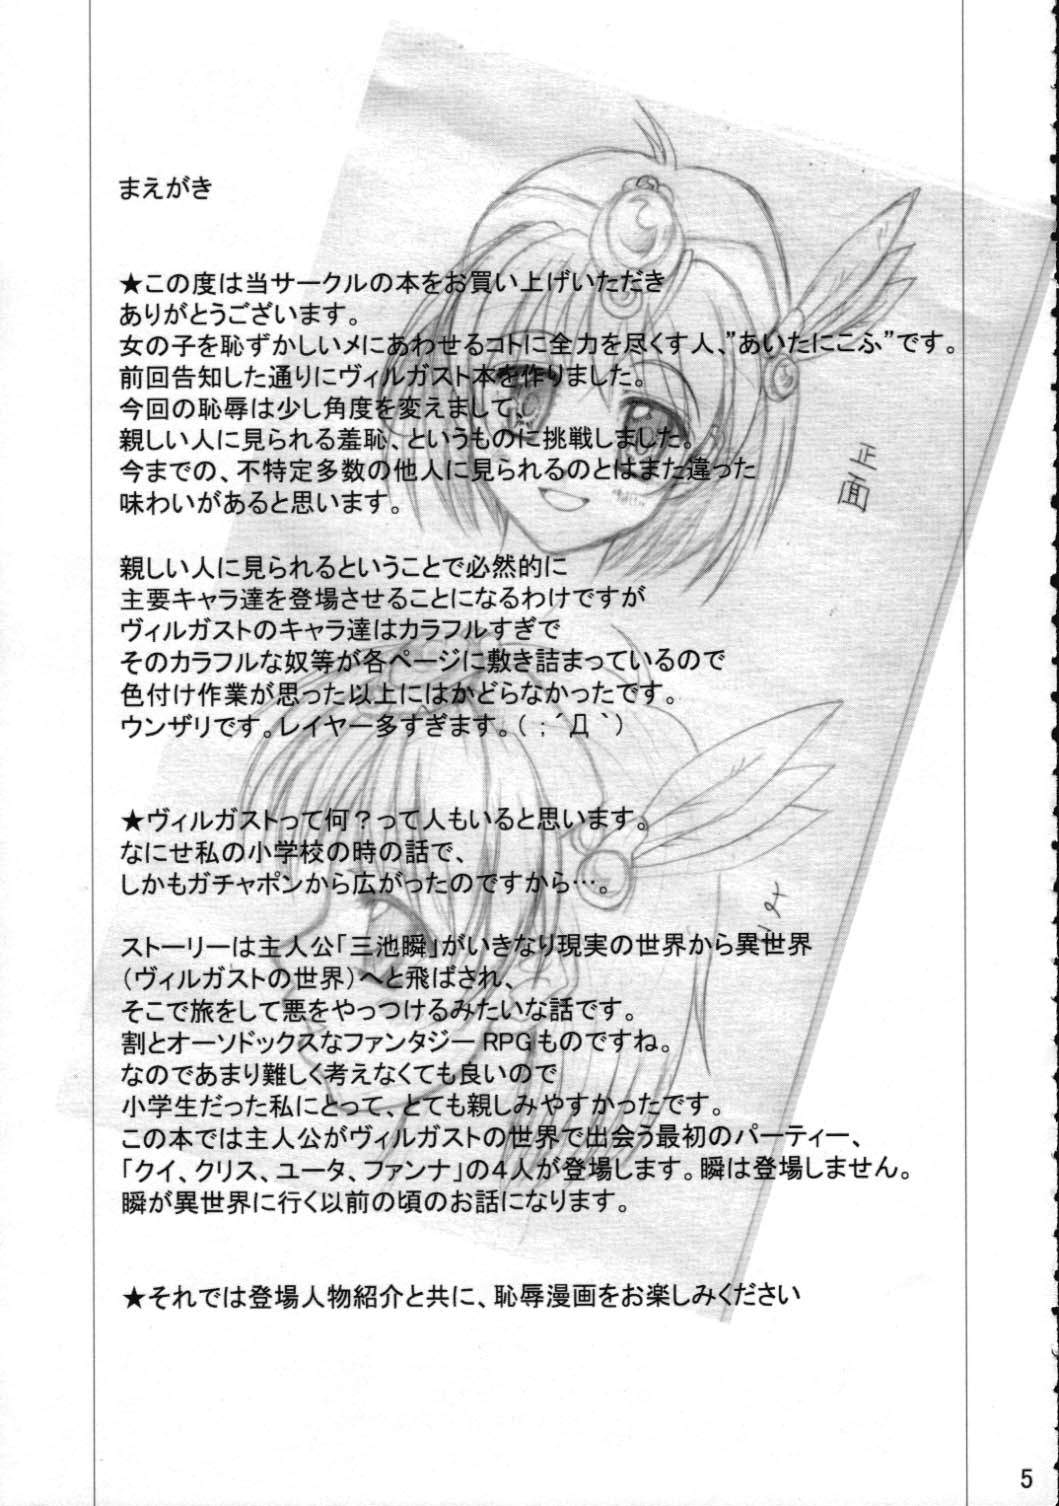 まえがき
★この度は当サークルの本をお買い上げいただき
ありがとうございます。
女の子を恥ずかしいメにあわせるコトに全力を尽くす人、”あいたにこふ”です。
前回告知した通りにヴィルガスト本を作りました。
今回の恥辱は少し角度を変えまして、
親しい人に見られる羞恥、というものに挑戦しました。
今までの、不特定多数の他人に見られるのとはまた違った
味わいがあると思います。
親しい人に見られるということで必然的に
主要キャラ達を登場させることになるわけですが
ヴィルガストのキャラ達はカラフルすぎで
そのカラフルな奴等が各ページに敷き詰まっているので
色付け作業が思った以上にはかどらなかったです。
ウンザリです。レイヤー多すぎます。（；´Д｀）
★ヴィルガストって何？って人もいると思います。
なにせ私の小学校の時の話で、
しかもガチャポンから広がったのですから…。
ストーリーは主人公「三池瞬」がいきなり現実の世界から異世界
（ヴィルガストの世界）へと飛ばされ、
そこで旅をして悪をやっつけるみたいな話です。
割とオーソドックスなファンタジーRPGものですね。
なのであまり難しく考えなくても良いので
小学生だった私にとって、とても親しみやすかったです。
この本では主人公がヴィルガストの世界で出会う最初のパーティー、
「クイ、クリス、ユータ、ファンナ」の４人が登場します。瞬は登場しません。
瞬が異世界に行く以前の頃のお話になります。
★それでは登場人物紹介と共に、恥辱漫画をお楽しみください
正面
5